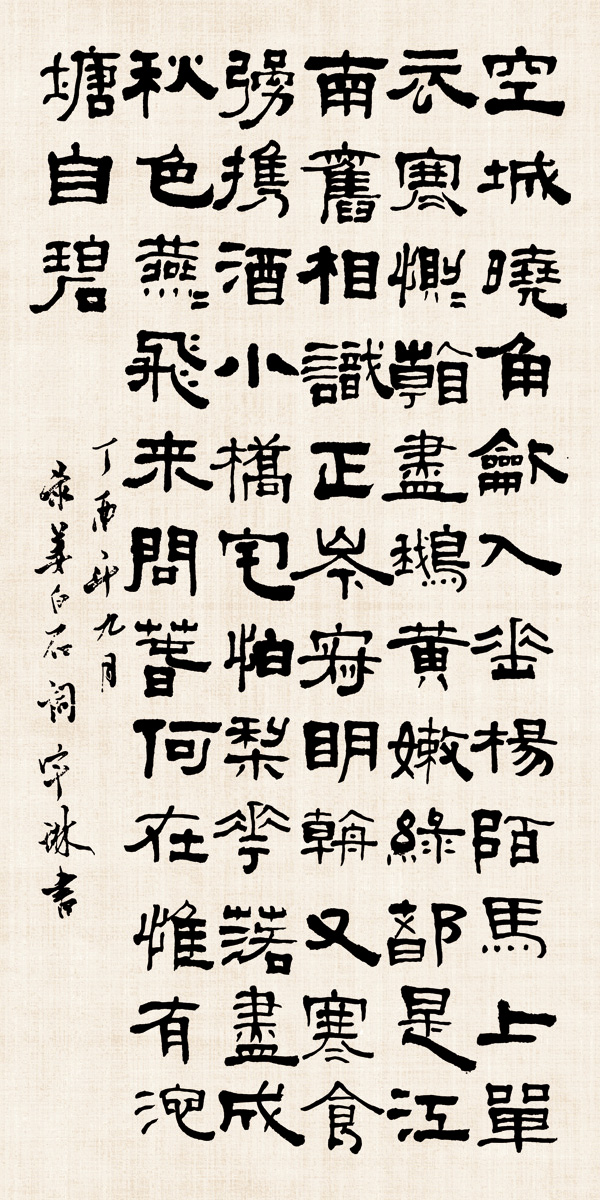 空城曉角龡入垂楊陌馬上單
衣寒惻〻看盡鵝黃嫩綠都是江
南舊相識正岑寂明朝又寒食
強携酒小橋宅怕梨花落盡成
秋色燕〻飛来問春何在惟有池
塘自碧
丁酉年九月
录姜白石詞 琳書